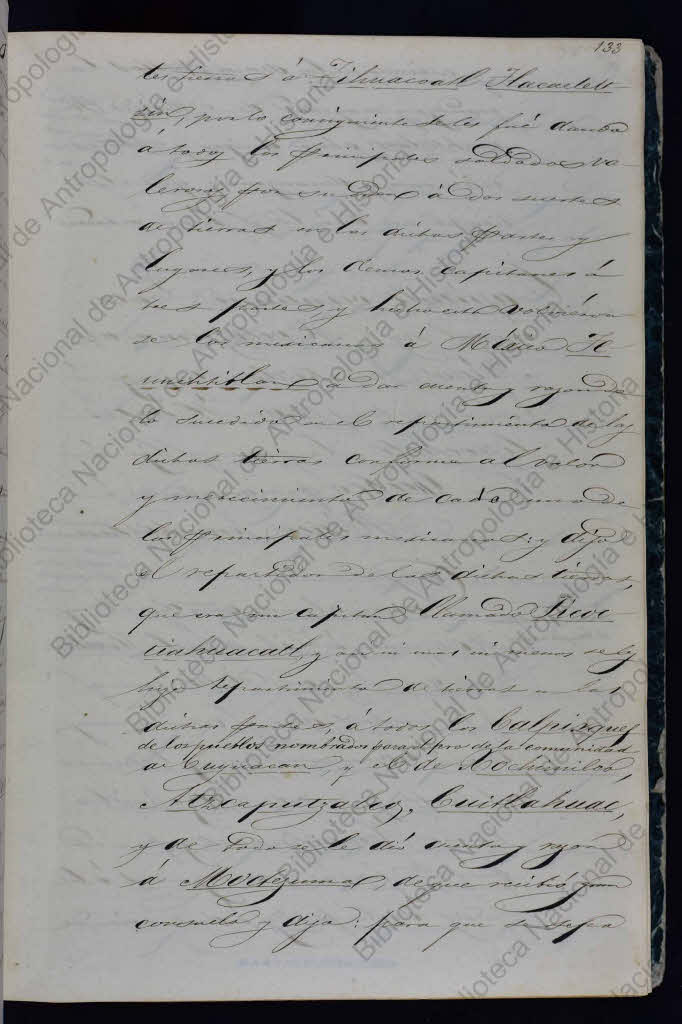 133
tes tierras á Zihuacoatl Tlacaelelt-
zin, por lo consiguiente se les fué dando
á todos los principales soldados va-
lerosos, por su orden á dos suertes
de tierras en las dichas partes y
lugares, y los demas capitanes á
tres partes, y hecho esto volviéron
se los mexicanos á México Te-
nuchtitlan á dar cuenta y razon de
lo sucedido en el repartimiento de las
dichas tierras conforme al valor
y merecimiento de cada uno de
los principales mexicanos: y dijo
el repartidor de las dichas tierras,
que era un capitan llamado
uahuacatl, y asi ni mas ni menos se les
hizo repartimiento de tierras en las
dichas partes, á todos los Calpixques
de los pueblos nombrados para el pro de la comunidad
de Cuyuacan, y el de Xochimilco,
Atzcaputzalco, Cuitlahuac,
y de todo se le dió cuenta y razon
á Moctezuma, de que recibió gran
consuelo y dijo: para que se sepa
Biblioteca Nacional de Antropología e Historia